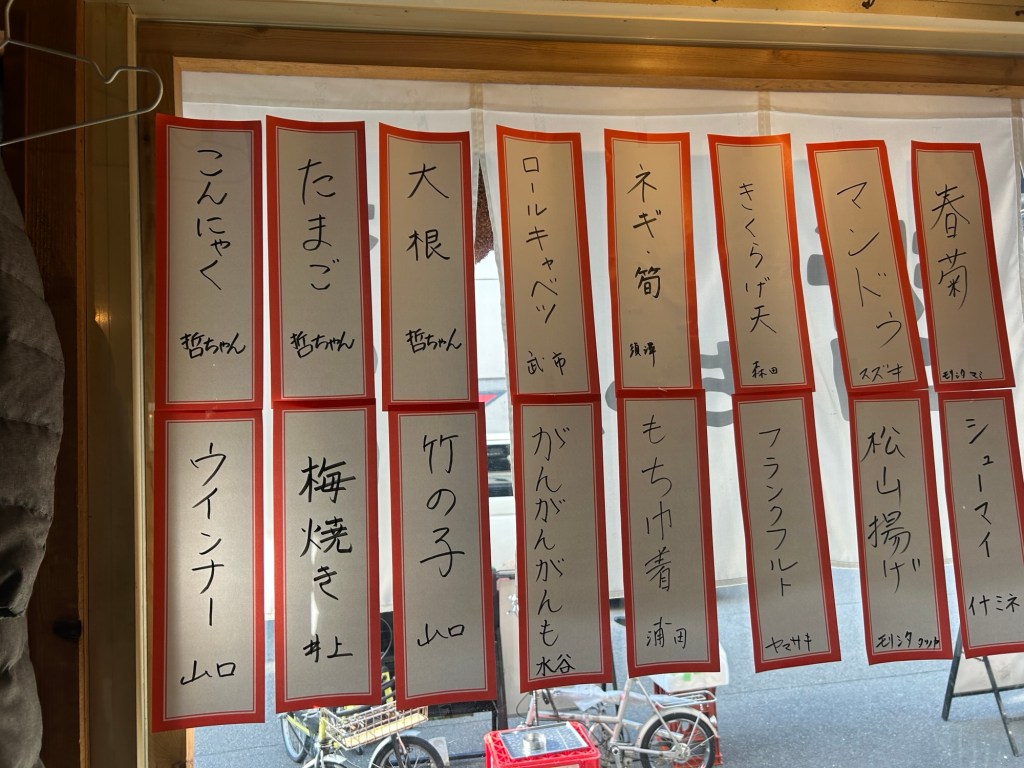 こんにゃく
哲ちゃん
たまご
哲ちゃん
大根
哲ちゃん
ロールキャベツ
武市
ネギ・筍
須澤
きくらげ天
森田
マンドゥ
スズキ
春菊
モリシタ
ウインナー
山口
梅焼き
井上
竹の子
山口
がんがんがんも
水谷
もち巾着
浦田
フランクフルト
ヤマサキ
松山揚げ
モリシタ
シューマイ
イナミネ